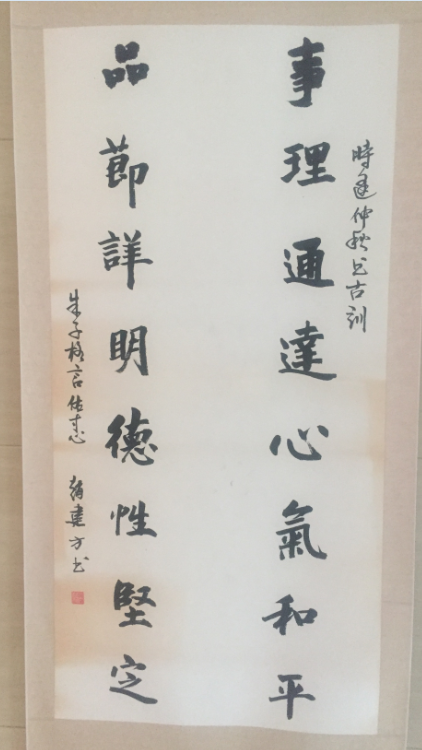 時逢仲秋書古訓
事理通達心氣和平
品節詳明德性堅定
朱子格言佐志
韓建方书